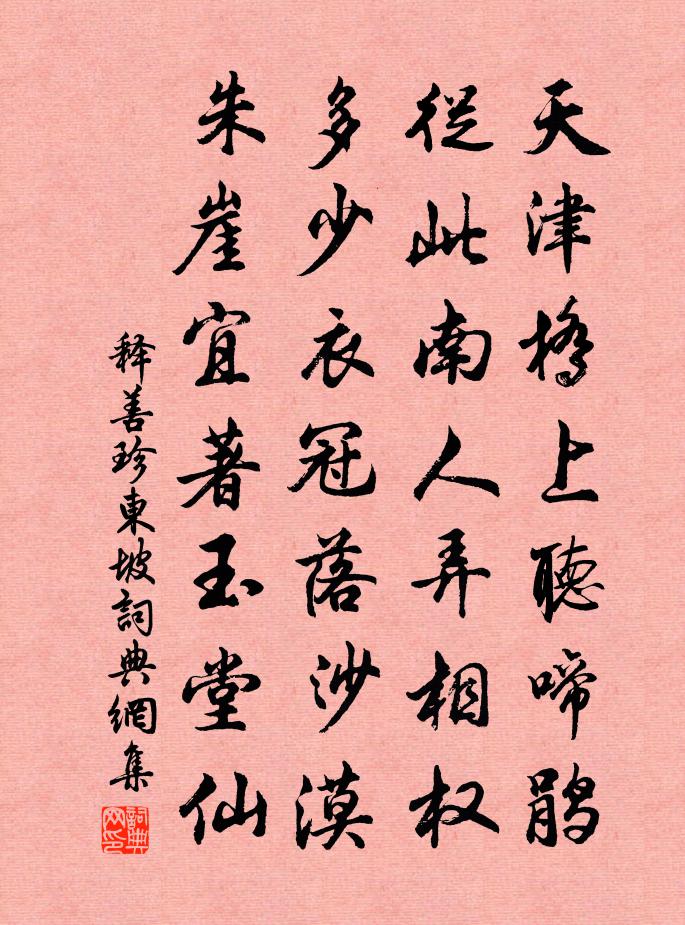 天津橋上聽啼鵑
從此南人弄相权
多少衣冠落沙漠
朱崖宜著玉堂仙
释善珍東坡詞典網集
詞典网印